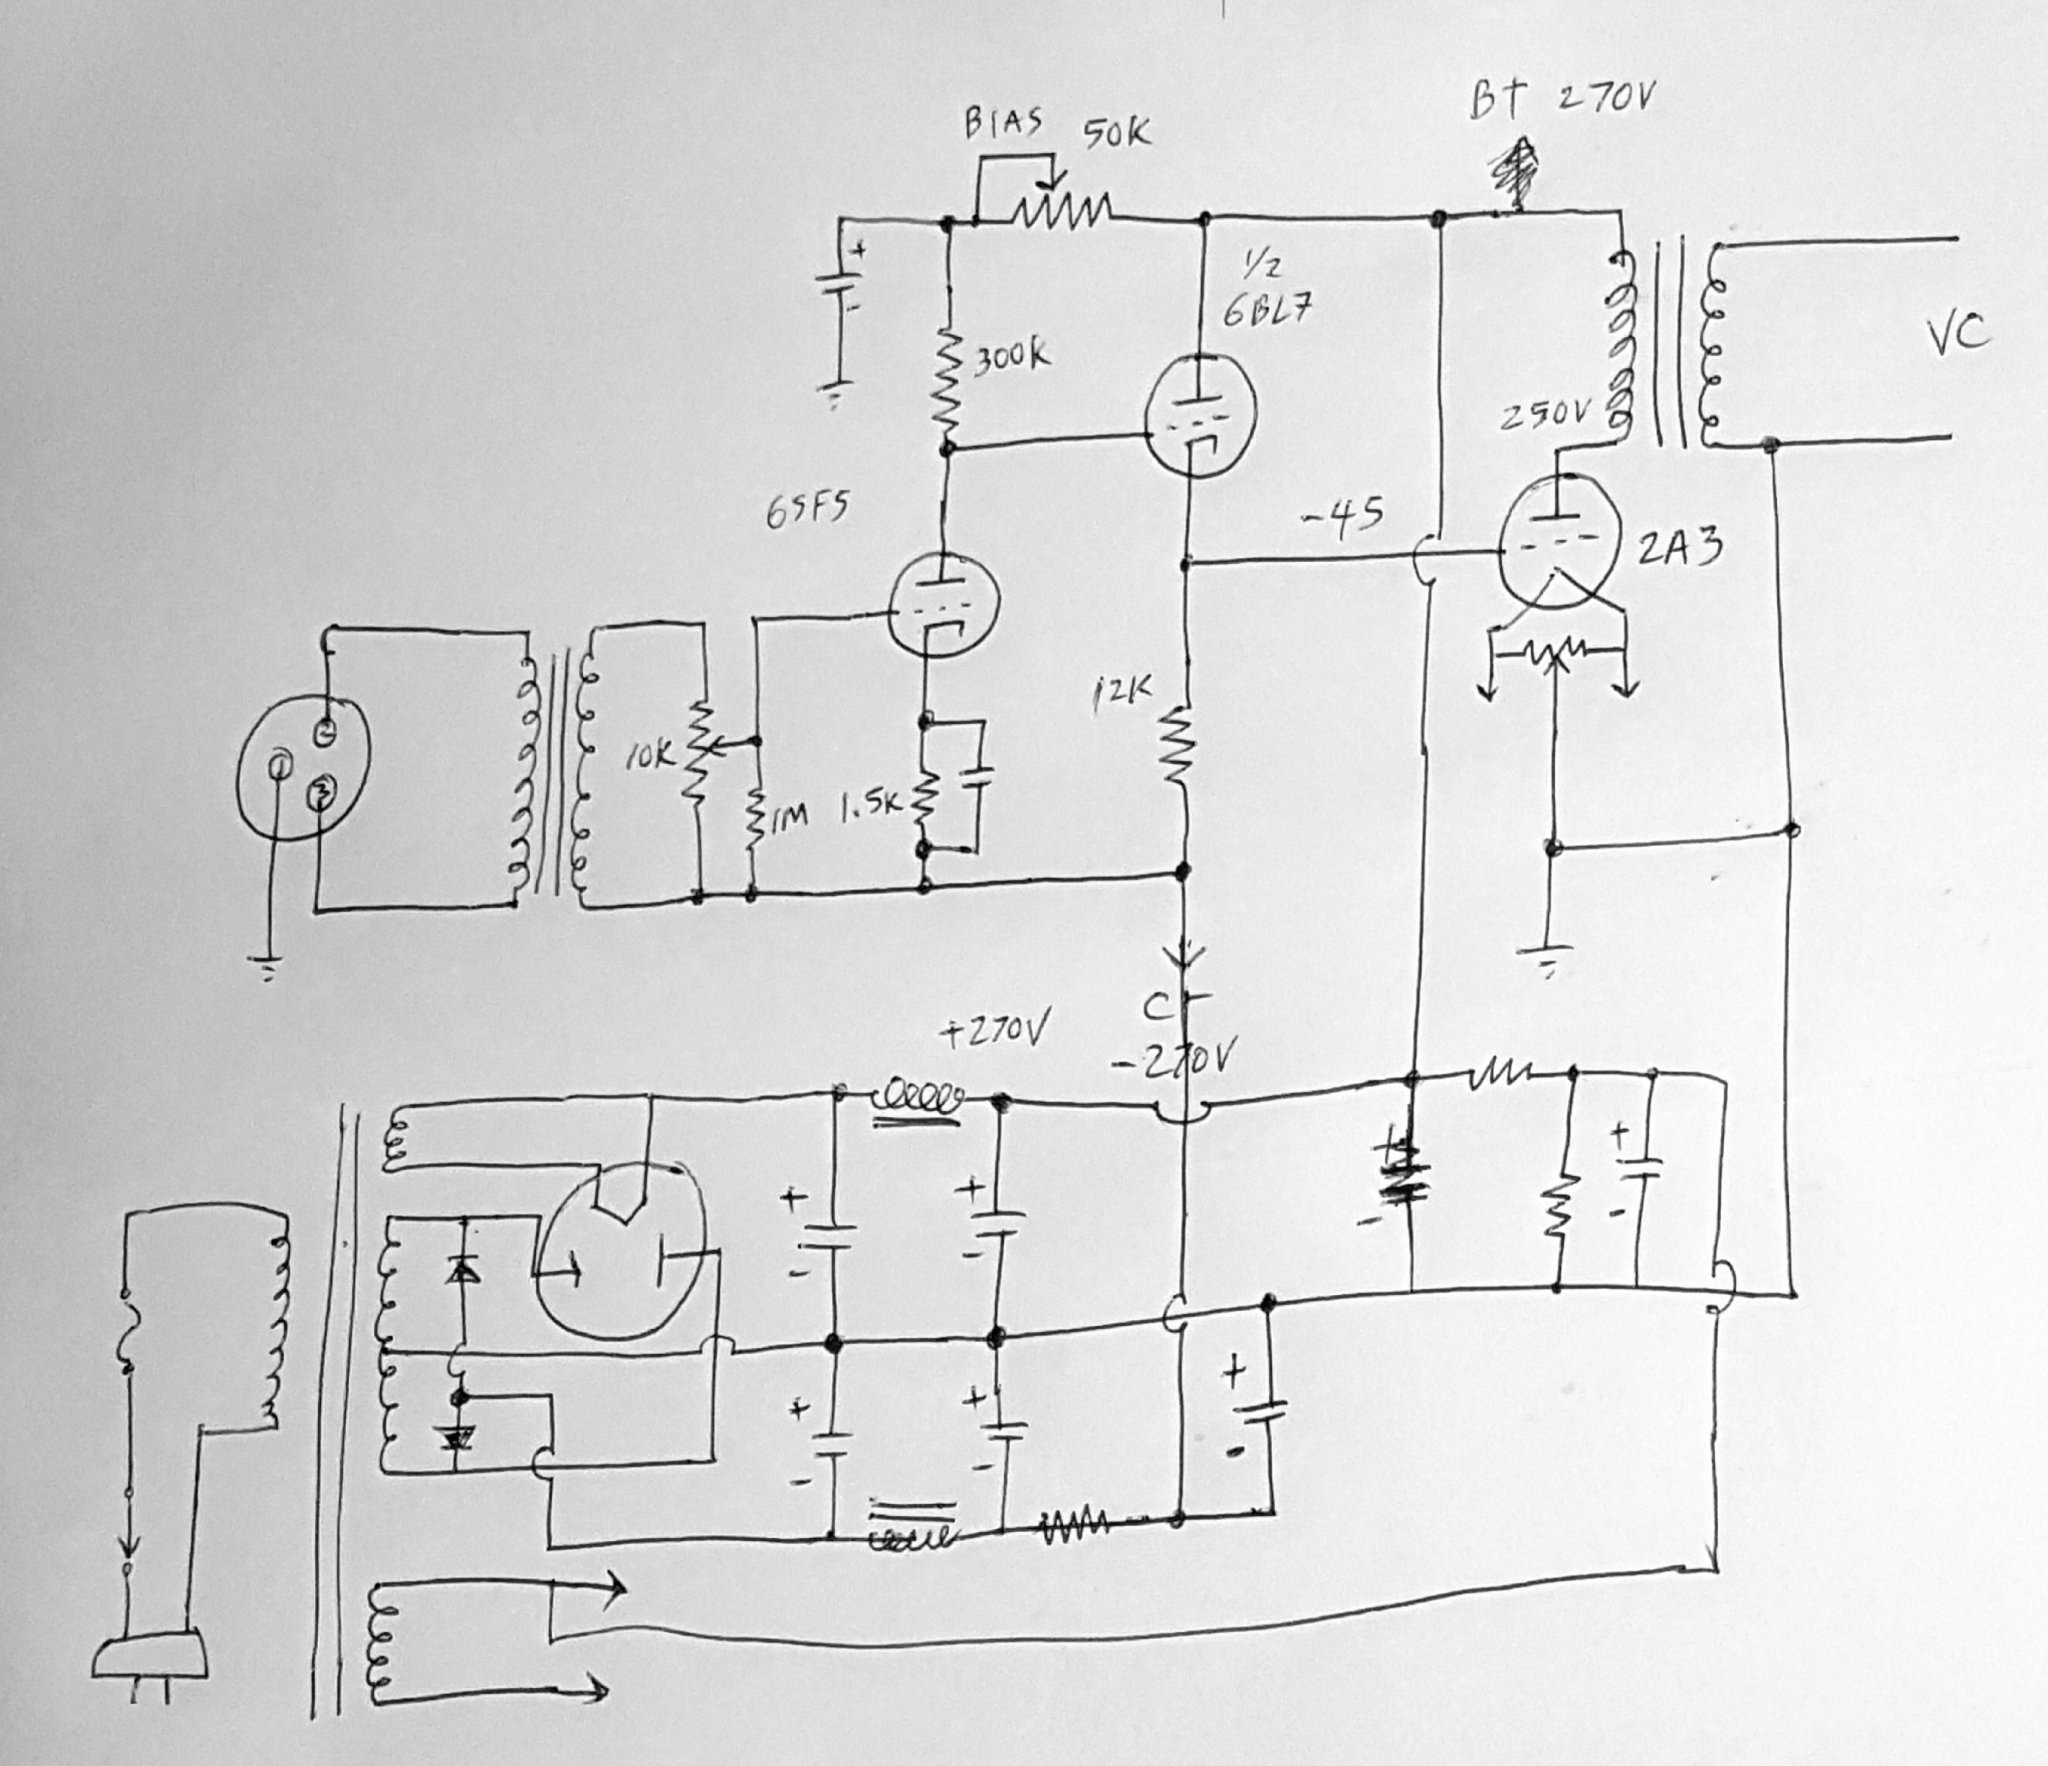 BIAS 50K
B+ 270V
+
-
1/2
6BL7
300K
VC
250V
6SF5
-45
2A3
12K
2
1
3
10K
1M
1.5K
C-
-270V
+270V
+
-
+
-
+
-
+
-
+
-
+
-
+
-